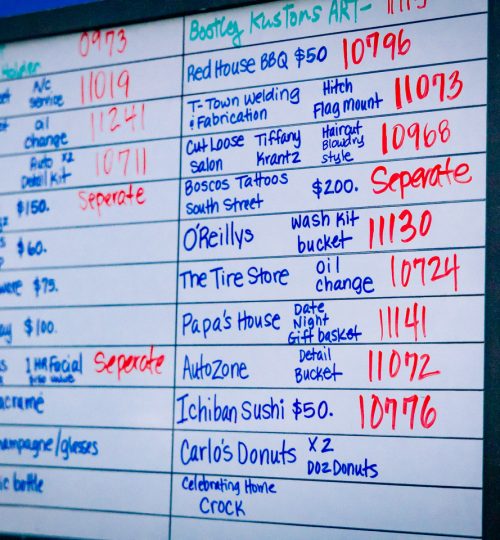 Holder 0973
A/C service 11019
oil change 11241
Auto x2 Detail Kit 10711
$150. Seperate
$60.
$75.
$100.
1 HR Facial Seperate
value
acramé
hampagne/glasses
bottle
Bootleg Kustoms ART-
Red House BBQ $50 10796
T-Town Welding Hitch 11073
& Fabrication Flag mount
Cut Loose Tiffany Haircut 10968
Salon Krantz Blowdry
style
Boscos Tattoos $200. Seperate
South Street
O'Reillys Wash Kit 11130
bucket
The Tire Store oil 10724
change
Papa's House Date 11141
Night
Gift basket
AutoZone Detail 11072
Bucket
Ichiban Sushi $50. 10776
Carlo's Donuts x2
Doz Donuts
Celebrating Home
Crock